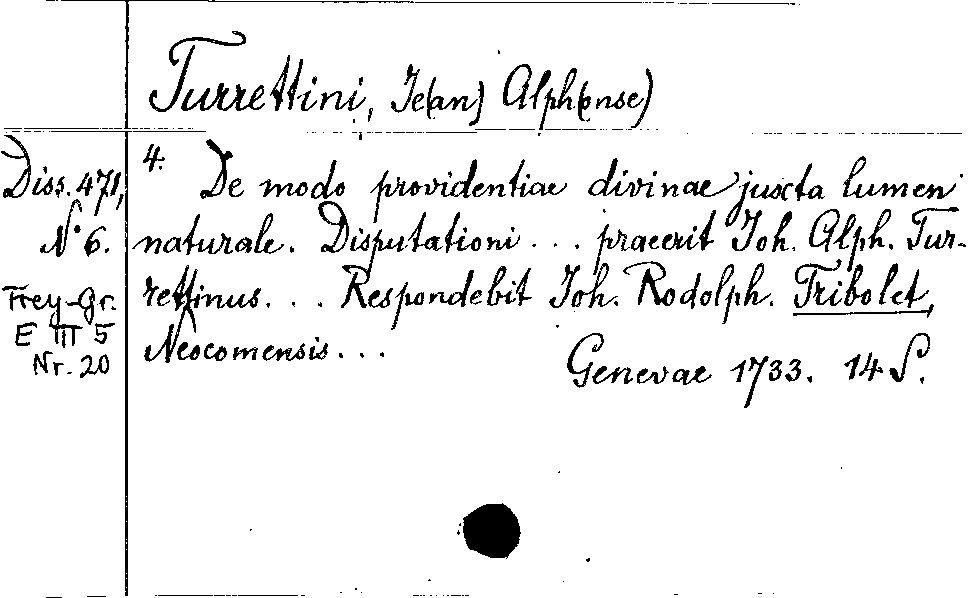 Turrettini, Je(an) Alph(onse)
Diss. 471,
N° 6.
Frey-Gr.
E III 5
Nr. 20
4. De modo providentiae divinae juxta lumen
naturale. Disputationi ... praeerit Joh. Alph. Tur-
rettinus. ... Respondebit Joh. Rodolph. Tribolet,
Neocomensis ...
Genevae 1733. 14 S.